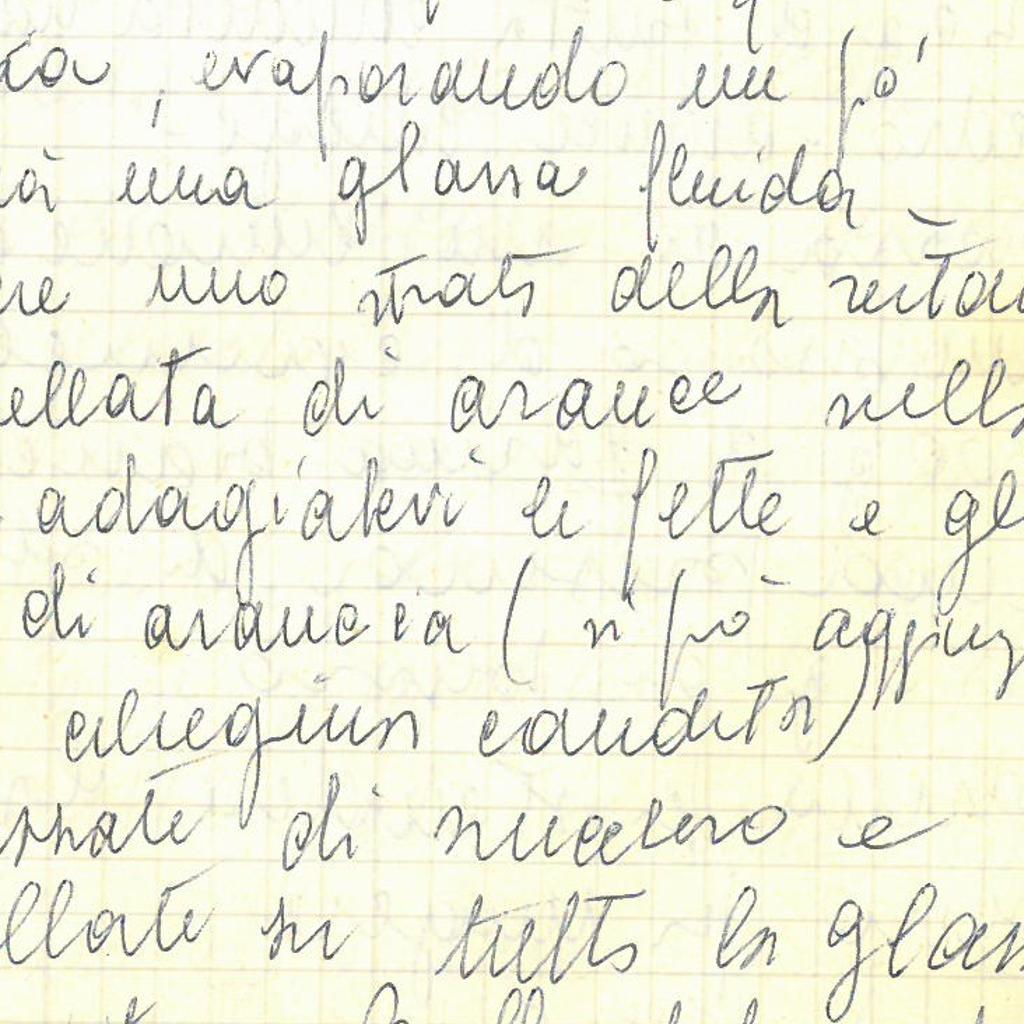 ta, evaporando un pò
rà una glassa fluida
re uno strato della restan
ellata di arance nella
adagiatevi le fette e gl
di arancia (si può aggiung
ciliegina candita)
ssate di zucchero e
ellate su tutto la glas